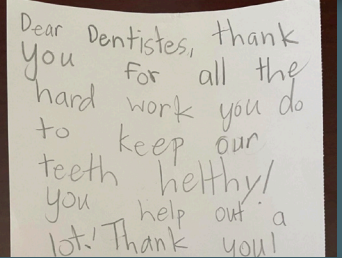 Dear Dentistes, thank
you for all the
hard work you do
to keep our
teeth helthy!
you help out a
lot! Thank you!